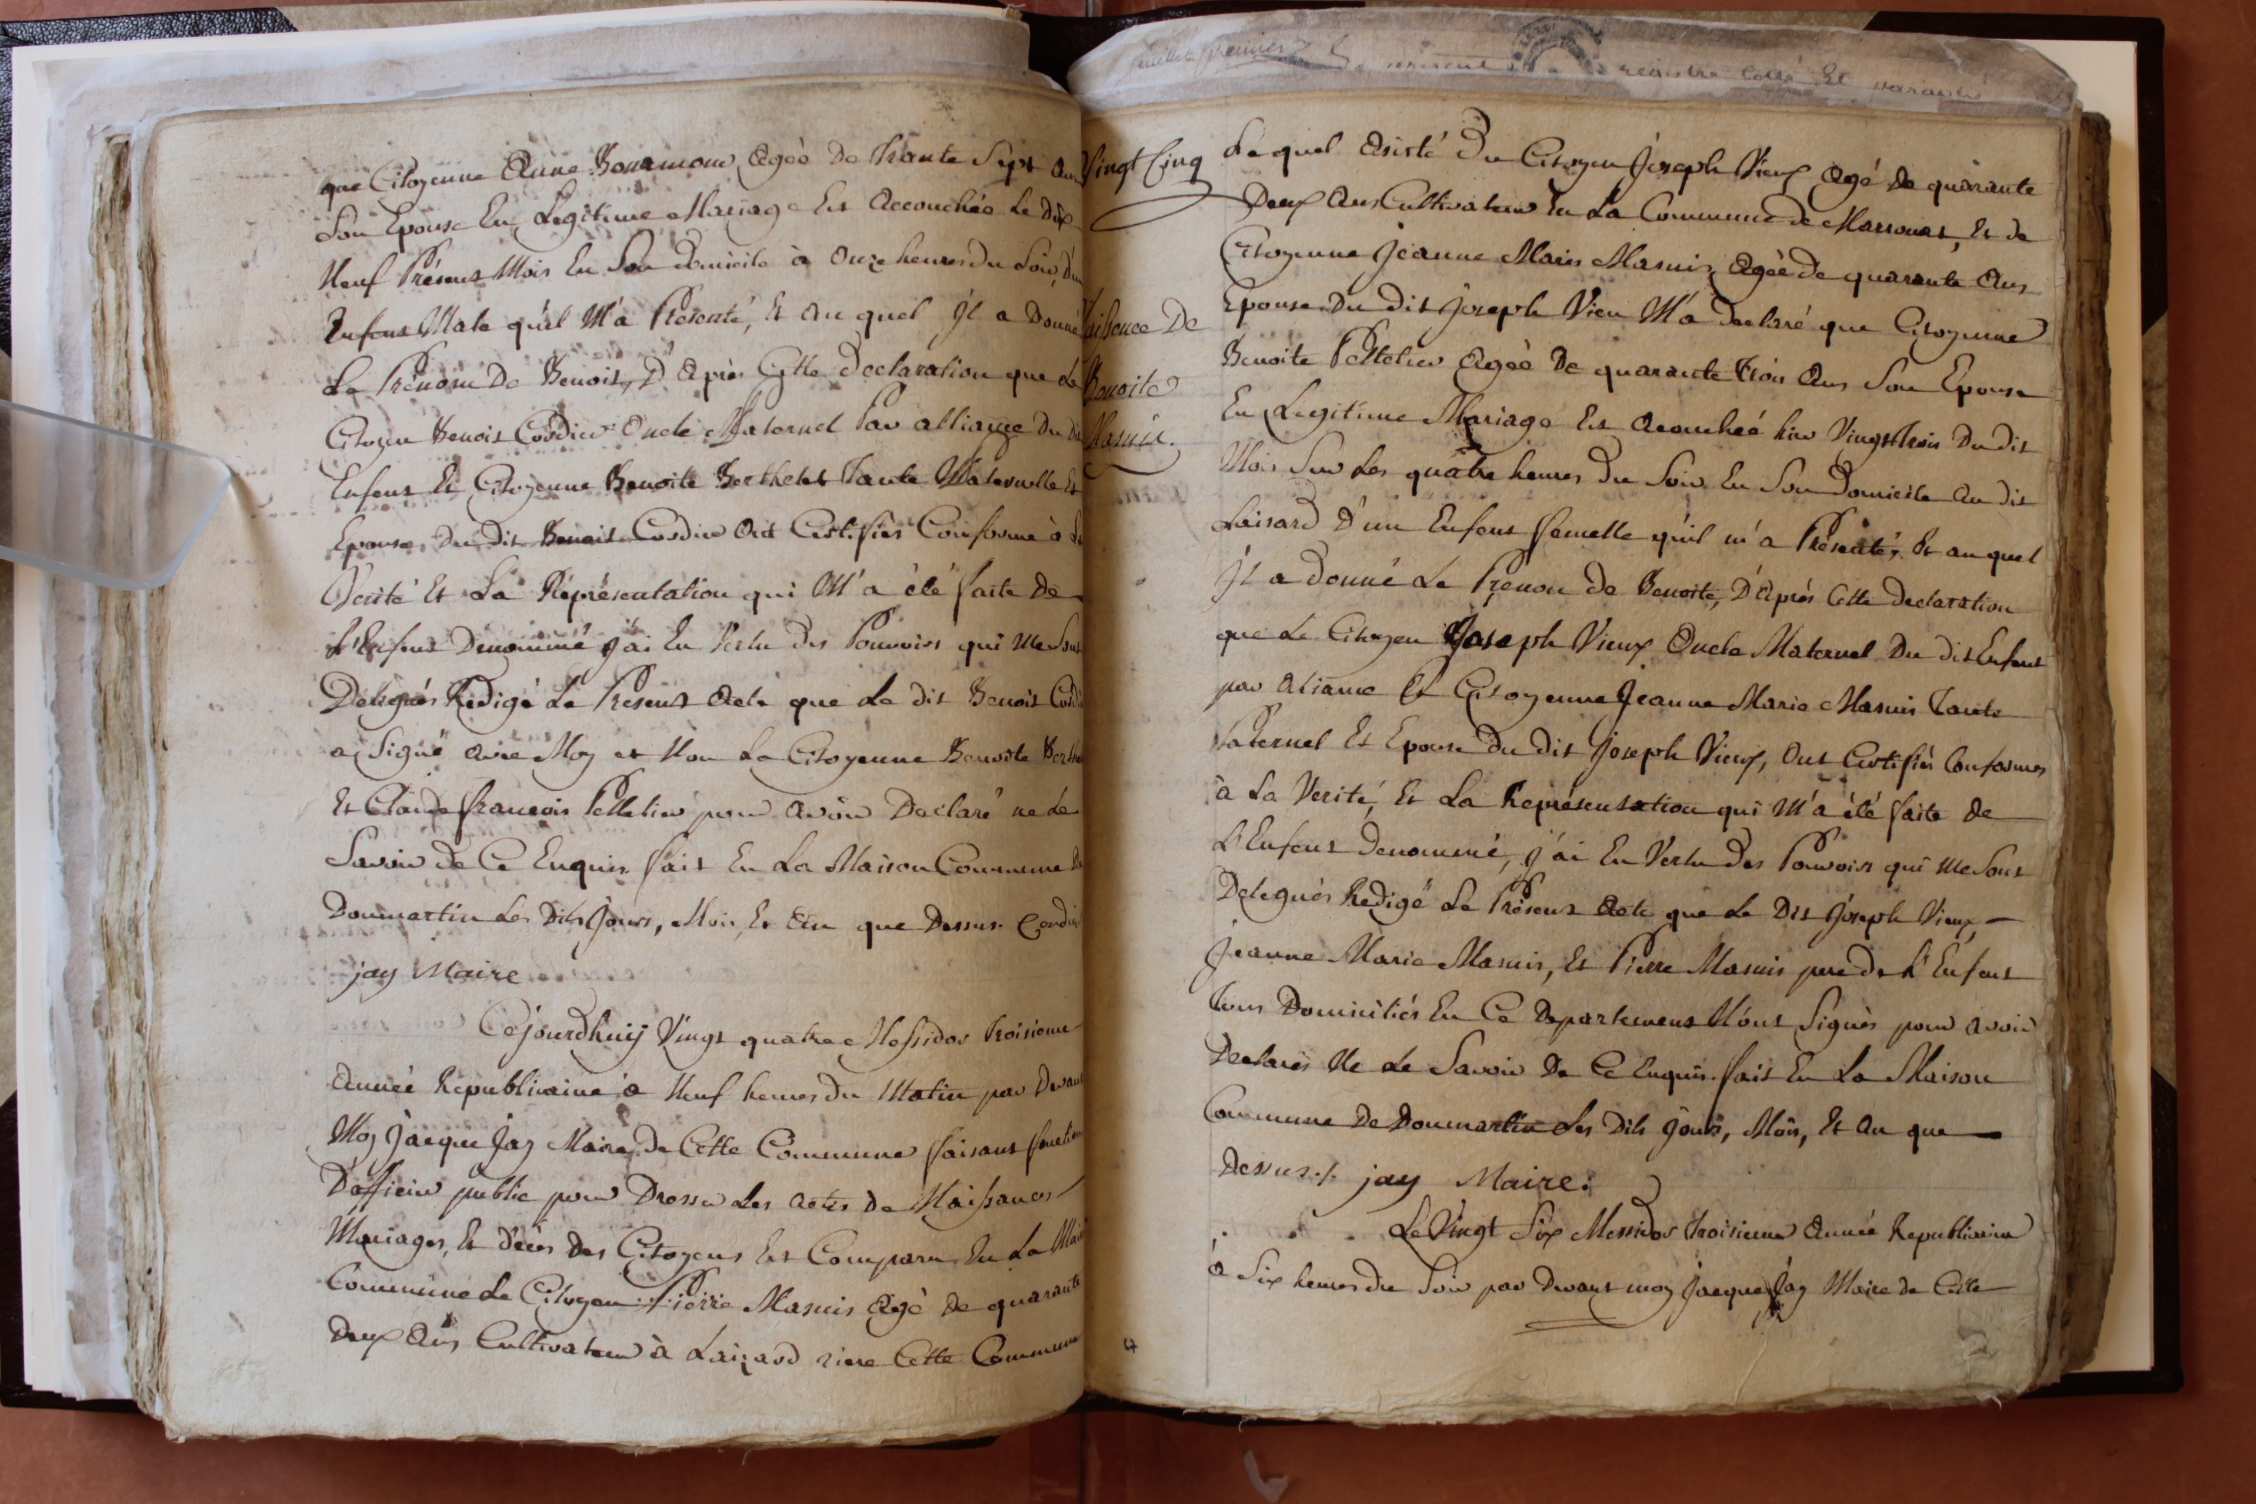 que Citoyenne Anne Bonamour Agée De Trante Sept Ans
Son Epouse En Legitime Mariage Est Accouchée Le Dix
Neuf Présent Mois En Son domicile à Onze heures du Soir, d'un
Enfent Male qu'il M'a Présenté, Et Au quel Jl a Donné
Le Prénom De Benoit, D'Après Cette Declaration que Le
Citoyen Benoit Cordier Oncle Maternel Par alliance Du dit
Enfent Et Citoyenne Benoite Berthelet Tante Maternelle Et
Epouse Du dit Benoit Cordier Ont Certifiés Conforme à La
Vérité Et La Représentation qui M'a été faite De
L'Enfent Denommé j'ai En Vertu Des Pouvoirs qui Me Sont
Delegués Redigé Le Present Acte que Le dit Benoit Cordier
a Signé avec Moy et Non La Citoyenne Benoite
Et Claude francois Pelletier pour avoir Declaré ne Le
Savoir de Ce Enquis fait En La Maison Commune De
Dommartin Les Dits Jours, Mois, Et An que Dessus. Cordier
jay Maire
Cejourdhuij Vingt quatre Messidor troisieme
Année Republicaine à Neuf heures du Matin par Devant
Moy Jacque Jay Maire de Cette Commune faisant fonction
D'officier public pour Dresser Les actes de Naissances
Mariages, Et décès Des Citoyens Est Comparu En La Maison
Commune Le Citoyen Pierre Masuis Agé de quarante
Deux Ans Cultivateur à Laizard riere Cette Commune
Vingt Cinq
Naissence De
Benoite
Masuis.
Le quel Asisté Du Citoyen Joseph Vieux Agé de quarante
Deux Ans Cultivateur En La Commune de Marsonas, Et de
Citoyenne Jeanne Marie Masuis Agée de quarante Ans
Epouse Du dit Joseph Vieu M'a declaré que Citoyenne
Benoite Pelletier Agée De quarante Trois Ans Son Epouse
En Legitime Mariage Est Acouchée hier Vingt Trois Du dit
Mois Sur Les quatre heures Du Soir En Son Domicile Au dit
Laisard D'un Enfent femelle qu'il m'a Présenté, Et au quel
Jl a Donné Le Prenon de Benoite, D'Après Cette Declaration
que Le Citoyen Joseph Vieux Oncle Maternel Du dit Enfent
par aliance Et Citoyenne Jeanne Marie Masuis Tante
Paternel Et Epouse Du dit Joseph Vieux, Ont Certifiés Conformes
à La Verité, Et La Représentation qui M'a été faite de
L'Enfent denommé, j'ai En Vertu Des Pouvoirs qui Me Sont
Delegués Redigé Le Présent Acte que Le Dit Joseph Vieux,
Jeanne Marie Masuis, Et Pierre Masuis pere de L'Enfent
Tous Domiciliés En Ce Departement N'ont Signés pour avoir
Declarés Ne Le Savoir De Ce Enquis fait En La Maison
Commune De Dommartin Les Dits Jours, Mois, Et An que
Dessus./. jay Maire.
Le Vingt Six Messidor troisieme Année Republicaine
à Six heures du Soir par Devant moy Jacque Jay Maire de Cette